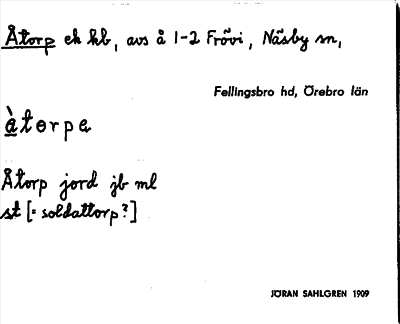 Åtorp ek kb, avs å 1-2 Frövi, Näsby sn,
Fellingsbro hd, Örebro län
àtorpa
Åtorp jord jb ml
st [= soldattorp?]
JÖRAN SAHLGREN 1909